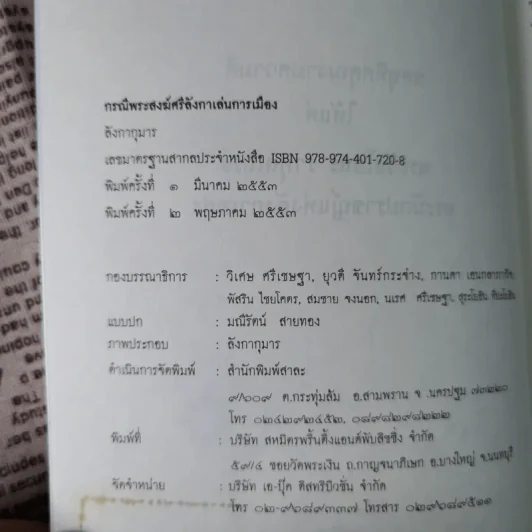 กรณีพระสงฆ์ศรีลังกาเล่นการเมือง
ลังกากุมาร
เลขมาตรฐานสากลประจำหนังสือ ISBN 978-974-401-720-8
พิมพ์ครั้งที่ ๑ มีนาคม ๒๕๕๓
พิมพ์ครั้งที่ ๒ พฤษภาคม ๒๕๕๓
กองบรรณาธิการ : วิเศษ ศรีเชษฐา, ยุวดี จันทร์กระจ่าง, กานดา
พัสริน ไชยโคตร, สมชาย จงนอก, นเรศ ศรีเชษฐา,
แบบปก : มณีรัตน์ สายทอง
ภาพประกอบ : ลังกากุมาร
ดำเนินการจัดพิมพ์ : สำนักพิมพ์สาละ
๙/๖๐๙ ต.กระทุ่มล้ม อ.สามพราน จ.นครปฐม ๗๓๒๒๐
โทร ๐๒๔๒๙๒๔๕๒, ๐๘๙๘๒๙๘๒๒๒
พิมพ์ที่ : บริษัท สหมิตรพริ้นติ้งแอนด์พับลิชชิ่ง จำกัด
๕๙/๔ ซอยวัดพระเงิน ถ.กาญจนาภิเษก อ.บางใหญ่ จ.นนทบุรี
จัดจำหน่าย : บริษัท เอ-บุ๊ค ดิสทริบิวชั่น จำกัด
โทร ๐๒-๙๖๘๙๓๓๗ โทรสาร ๐๒๙๖๘๙๕๑๑